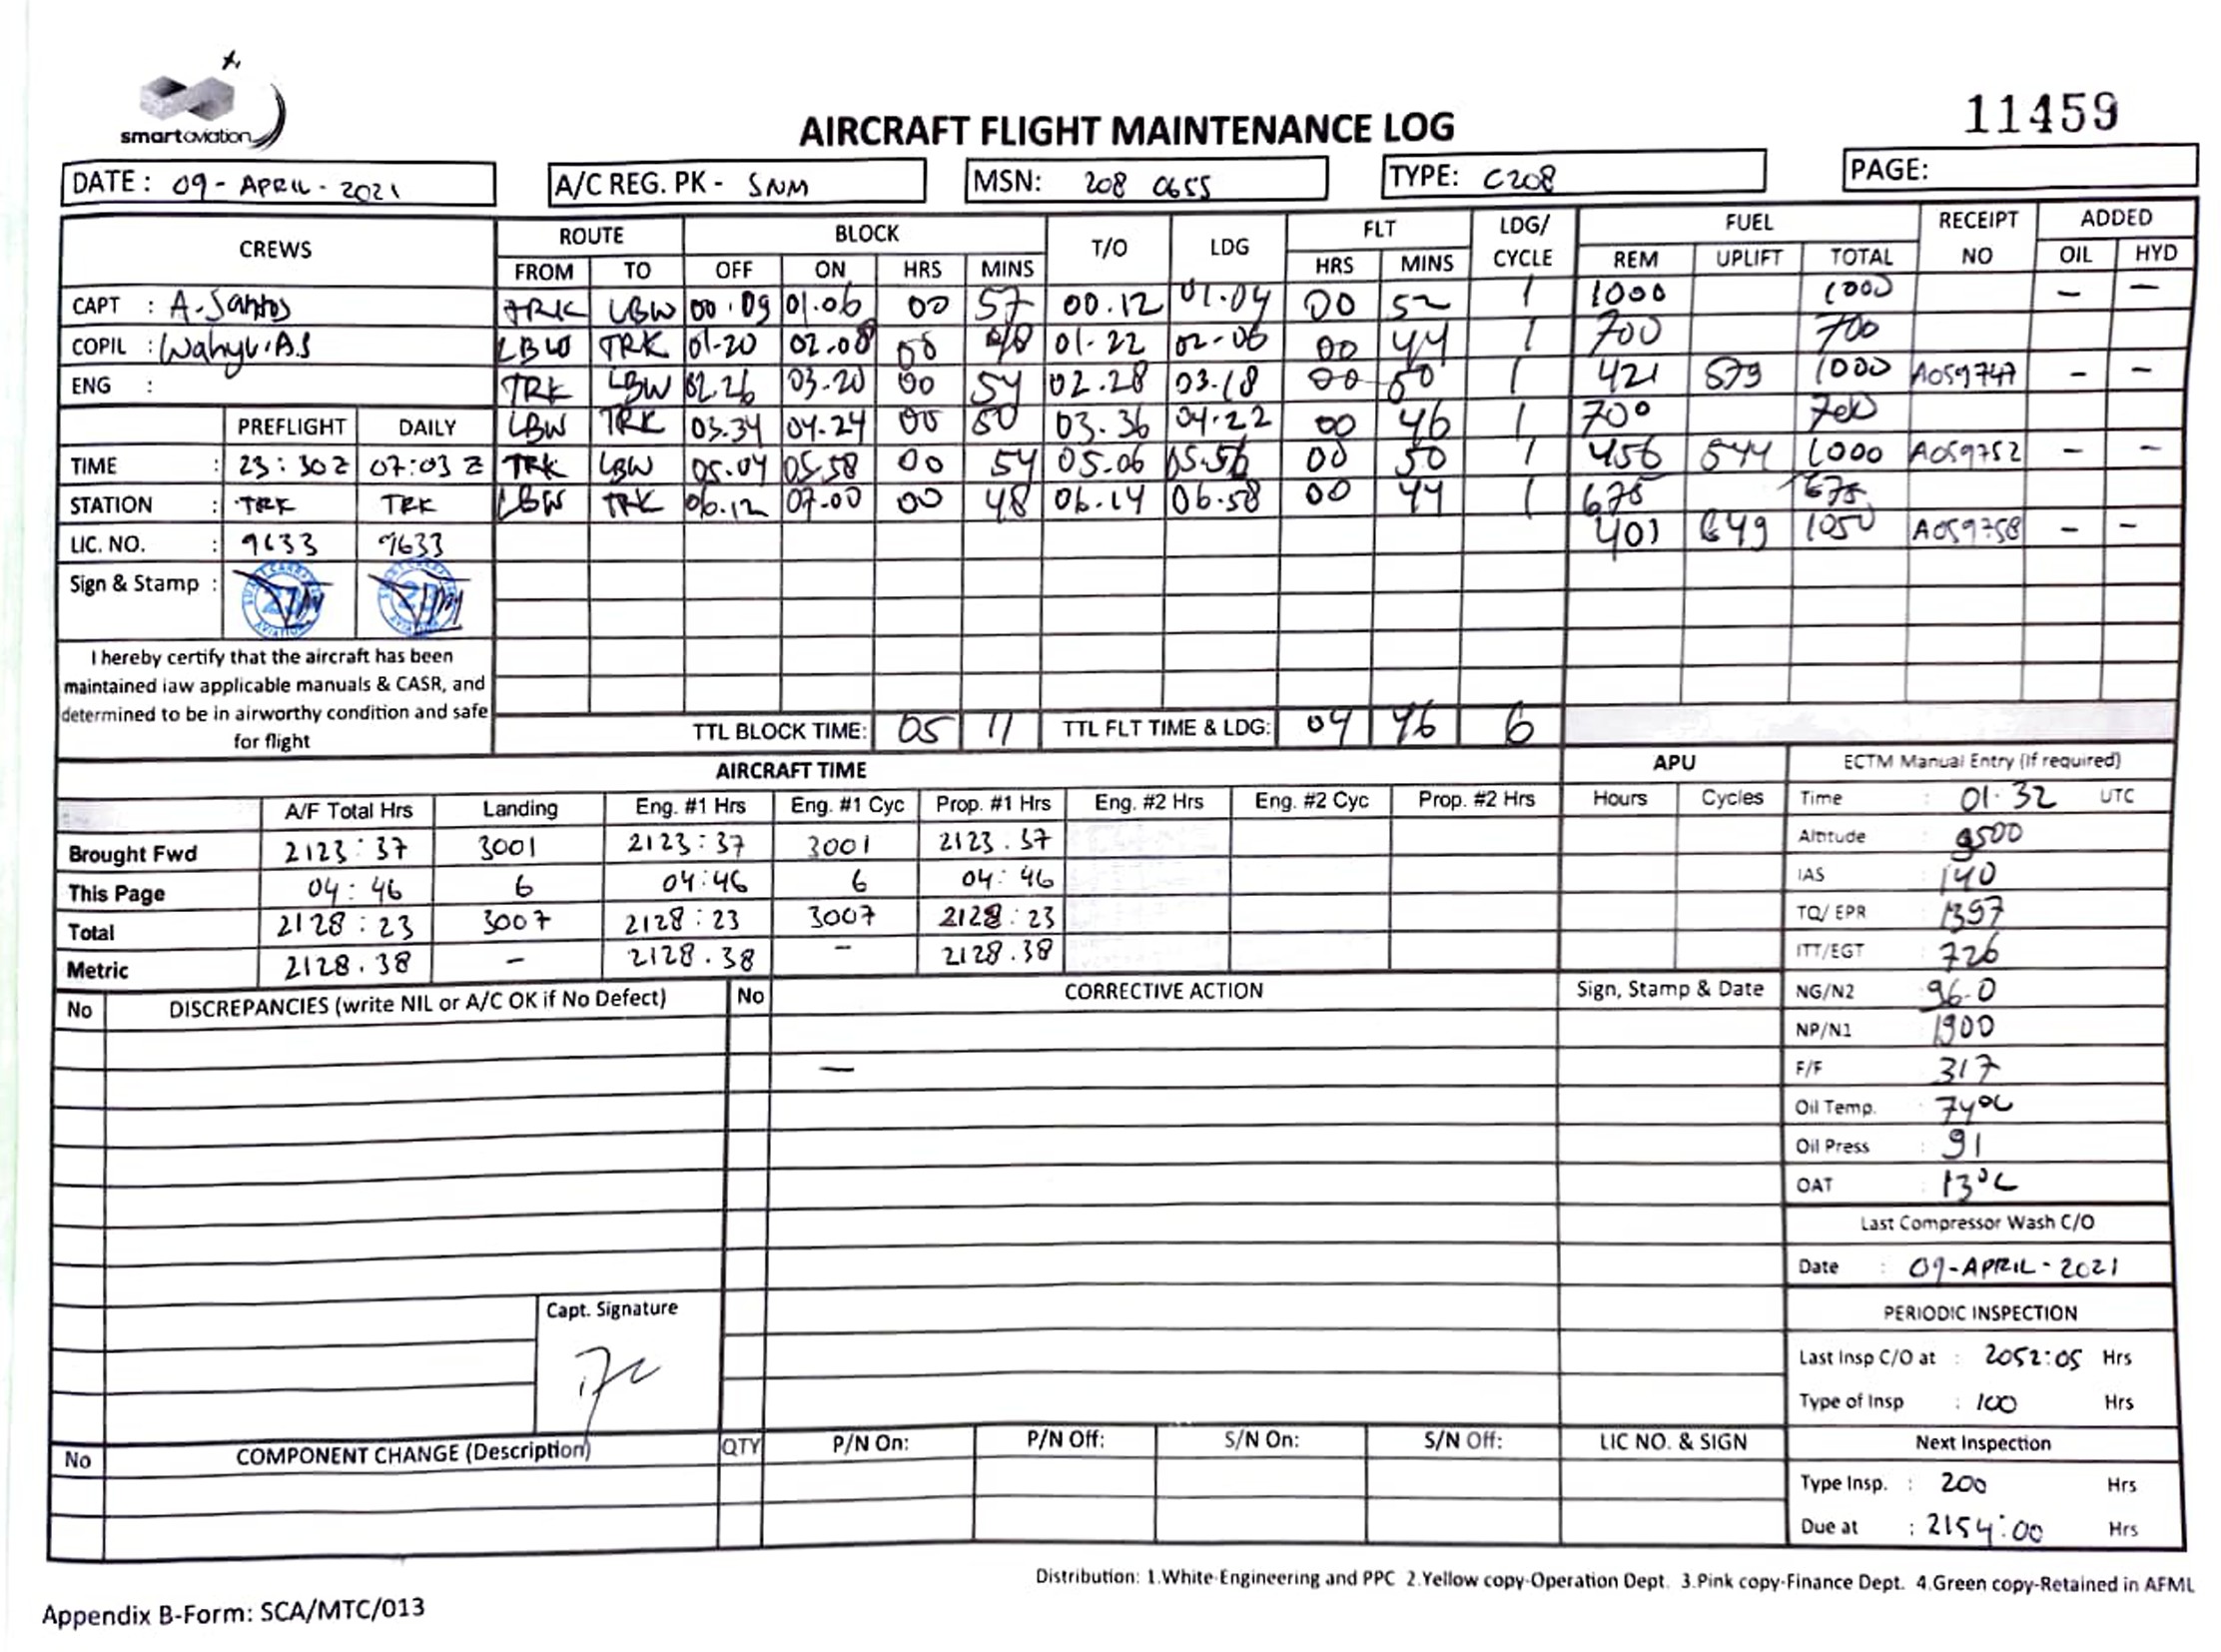 smartaviation
11459
AIRCRAFT FLIGHT MAINTENANCE LOG
DATE: 09-APRIL-2021 A/C REG. PK - SNM MSN: 208 0655 TYPE: C208 PAGE:
CREWS ROUTE BLOCK T/O LDG FLT LDG/ CYCLE FUEL RECEIPT NO ADDED
FROM TO OFF ON HRS MINS HRS MINS REM UPLIFT TOTAL OIL HYD
CAPT : A. Santos TRK LBW 00.09 01.06 00 57 00.12 01.04 00 52 1 1000 1000 - -
COPIL : Wahyu.A.S LBW TRK 01-20 02.08 00 48 01.22 02-06 00 44 1 700 700
ENG : TRK LBW 02.26 03-20 00 54 02.28 03.18 00 50 1 421 579 1000 A059747 - -
PREFLIGHT DAILY LBW TRK 03.34 04.24 00 50 03.36 04.22 00 46 1 700 700
TIME : 23:30 Z 07:03 Z TRK LBW 05.04 05.58 00 54 05.06 05.56 00 50 1 456 544 1000 A059752 - -
STATION : TRK TRK LBW TRK 06.12 07.00 00 48 06.14 06.58 00 44 1 675 675
LIC. NO. : 9633 9633 401 649 1050 A059758 - -
Sign & Stamp :
I hereby certify that the aircraft has been
maintained iaw applicable manuals & CASR, and
determined to be in airworthy condition and safe
for flight
TTL BLOCK TIME: 05 11 TTL FLT TIME & LDG: 04 46 6
AIRCRAFT TIME APU
A/F Total Hrs Landing Eng. #1 Hrs Eng. #1 Cyc Prop. #1 Hrs Eng. #2 Hrs Eng. #2 Cyc Prop. #2 Hrs Hours Cycles
Brought Fwd 2123:37 3001 2123:37 3001 2123.37
This Page 04:46 6 04:46 6 04:46
Total 2128:23 3007 2128:23 3007 2128:23
Metric 2128.38 - 2128.38 - 2128.38
ECTM Manual Entry (If required)
Time : 01.32 UTC
Altitude 9500
IAS 140
TQ/ EPR 1397
ITT/EGT 726
NG/N2 96.0
NP/N1 1900
F/F 317
Oil Temp. 74°C
Oil Press : 91
OAT 13°C
Last Compressor Wash C/O
Date : 09-APRIL-2021
PERIODIC INSPECTION
Last Insp C/O at : 2052:05 Hrs
Type of Insp : 100 Hrs
Next Inspection
Type Insp. : 200 Hrs
Due at : 2154:00 Hrs
No DISCREPANCIES (write NIL or A/C OK if No Defect) No CORRECTIVE ACTION Sign, Stamp & Date
-
Capt. Signature
No COMPONENT CHANGE (Description) QTY P/N On: P/N Off: S/N On: S/N Off: LIC NO. & SIGN
Distribution: 1.White-Engineering and PPC 2.Yellow copy-Operation Dept. 3.Pink copy-Finance Dept. 4.Green copy-Retained in AFML
Appendix B-Form: SCA/MTC/013